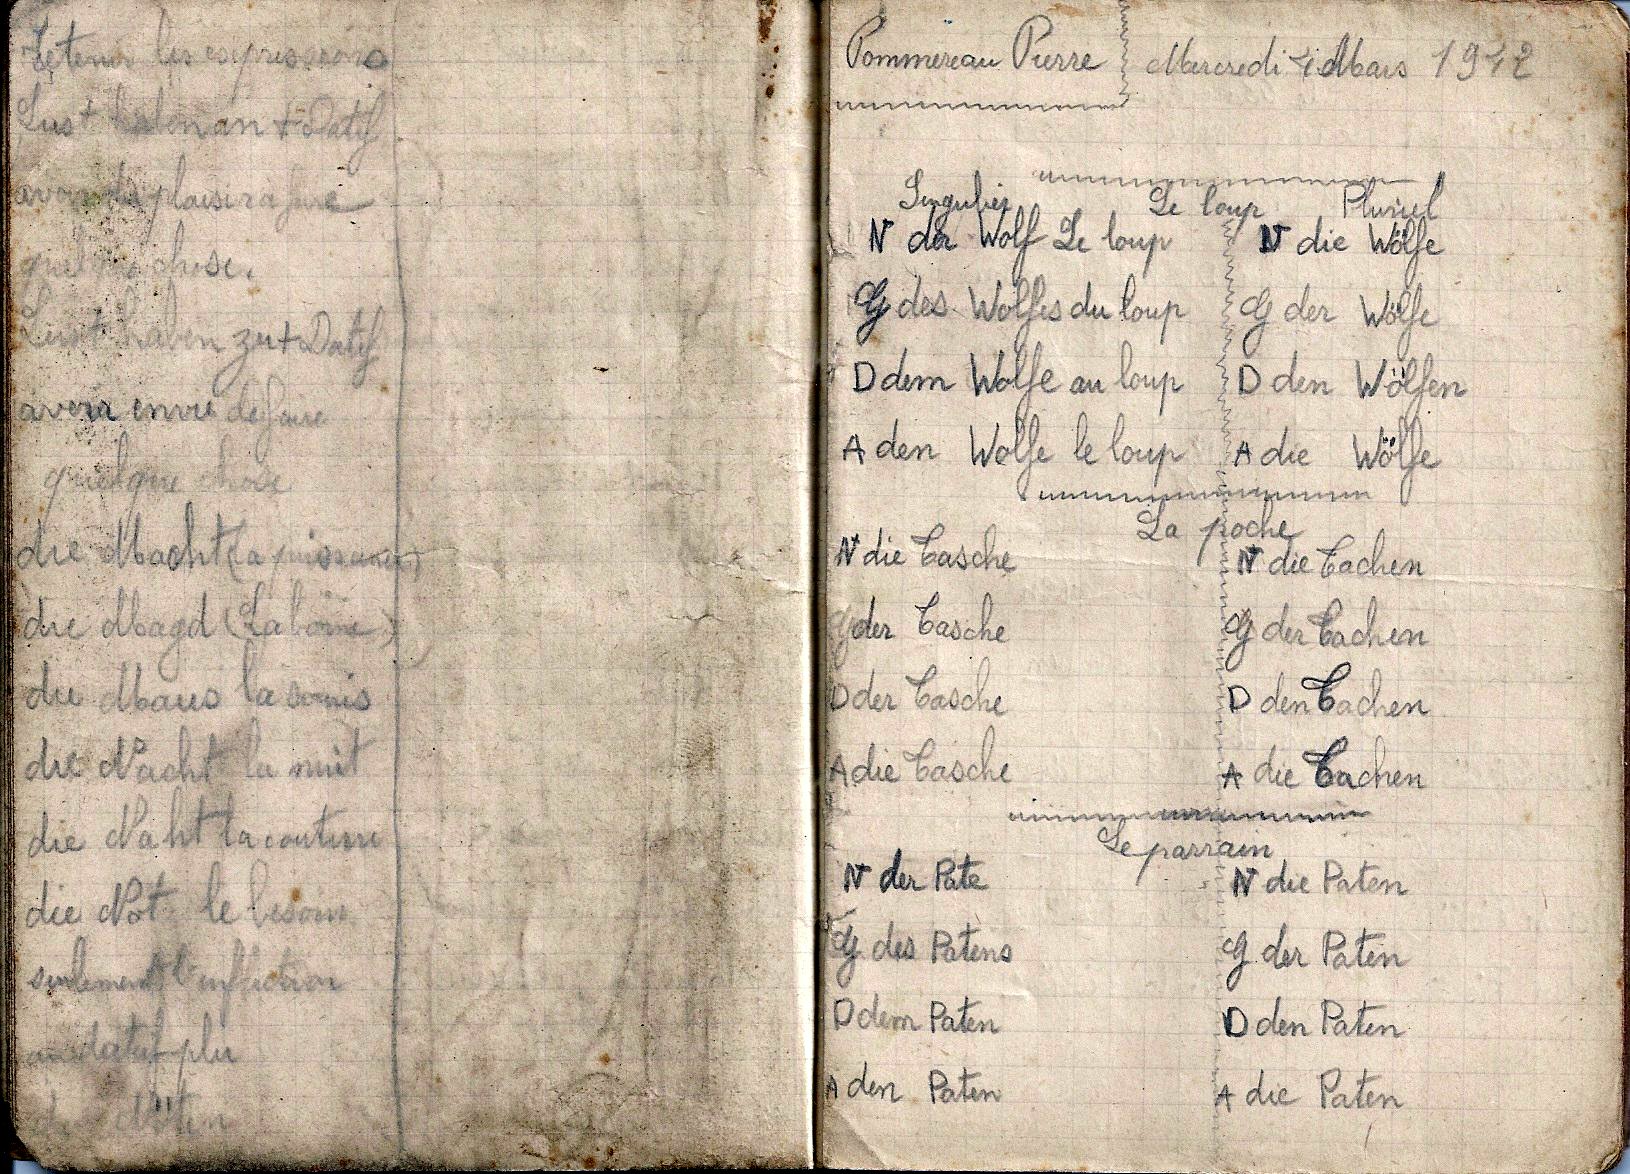 Retenir les expressions
Lust haben an + Datif
avoir du plaisir à faire
quelque chose.
Lust haben zu + Datif
avoir envie de faire
quelque chose
die Macht (la puissance)
die Magd (La bonne)
die Maus la souris
die Nacht la nuit
die Naht la couture
die Not le besoin
seulement l'infliction
au datif plu
den Nöten
Pommereau Pierre Mercredi 4 Mars 1942
Singulier Le loup Pluriel
N der Wolf Le loup N die Wölfe
G des Wolfes du loup G der Wölfe
D dem Wolfe au loup D den Wölfen
A den Wolfe le loup A die Wölfe
La poche
N die Tasche N die Tachen
G der Tasche G der Tachen
D der Tasche D den Tachen
A die Tasche A die Tachen
Le parrain
N der Pate N die Paten
G des Patens G der Paten
D dem Paten D den Paten
A den Paten A die Paten